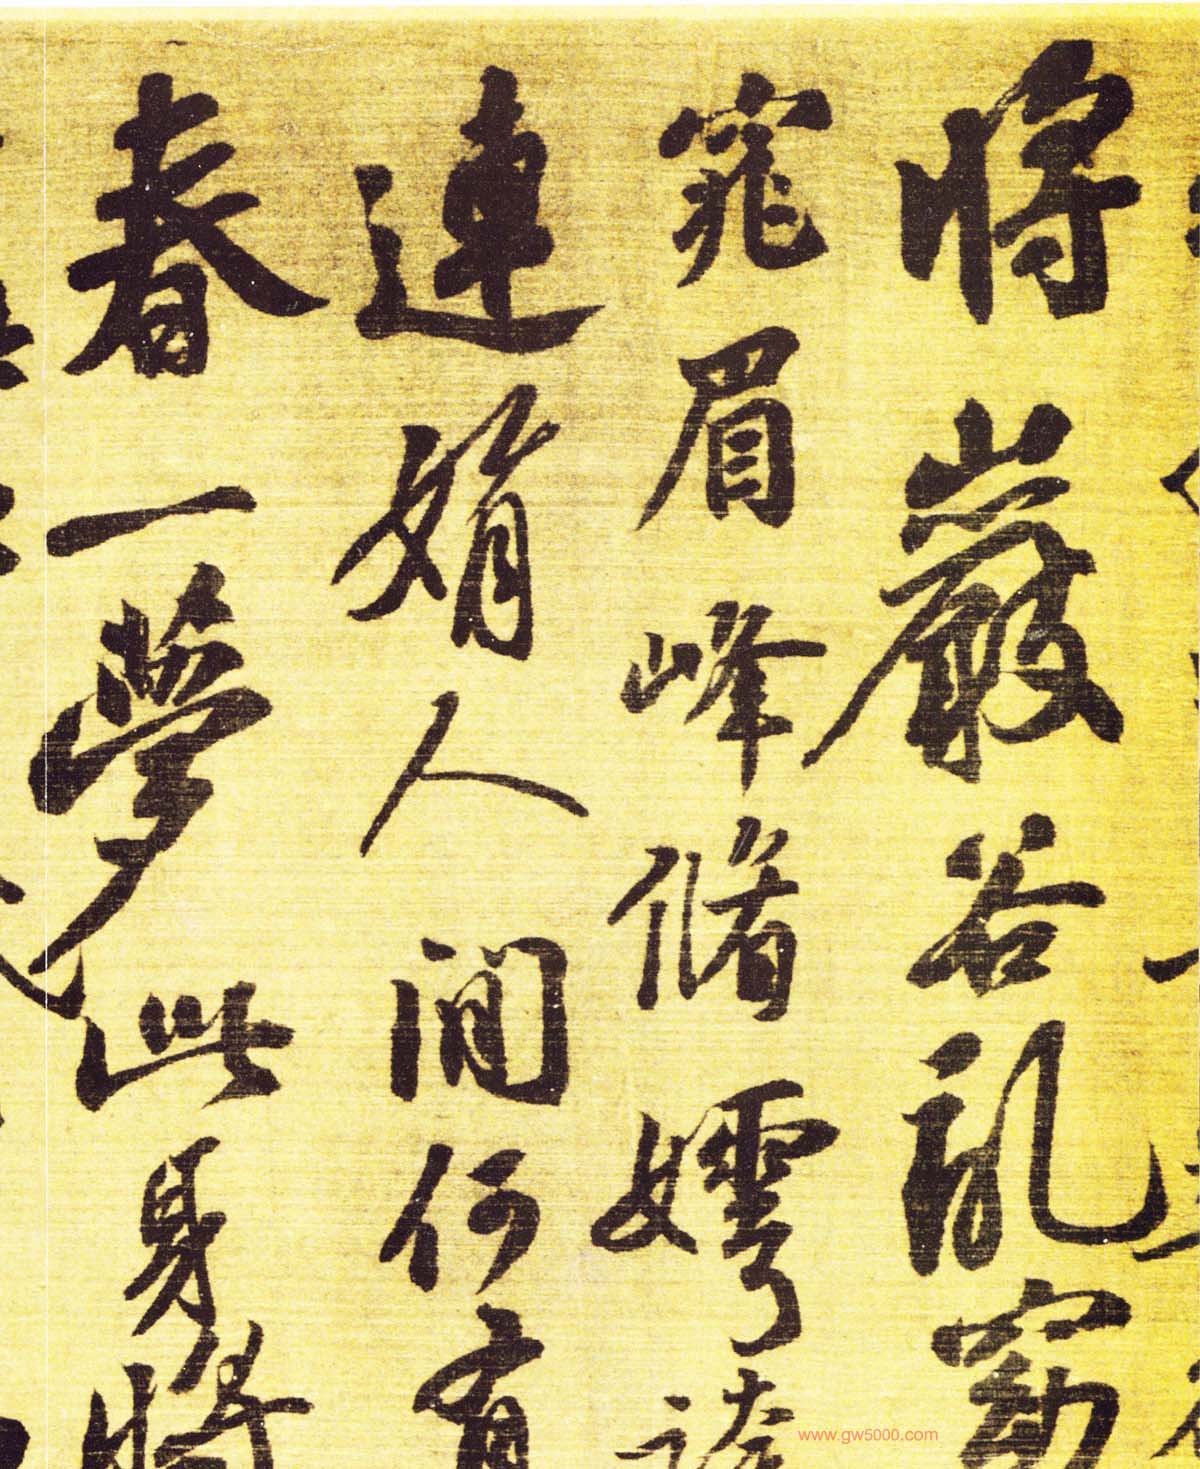 將巖谷亂窈
窕眉峰脩嫮誇
連娟人間何有
春一夢此身將
www.gw5000.com